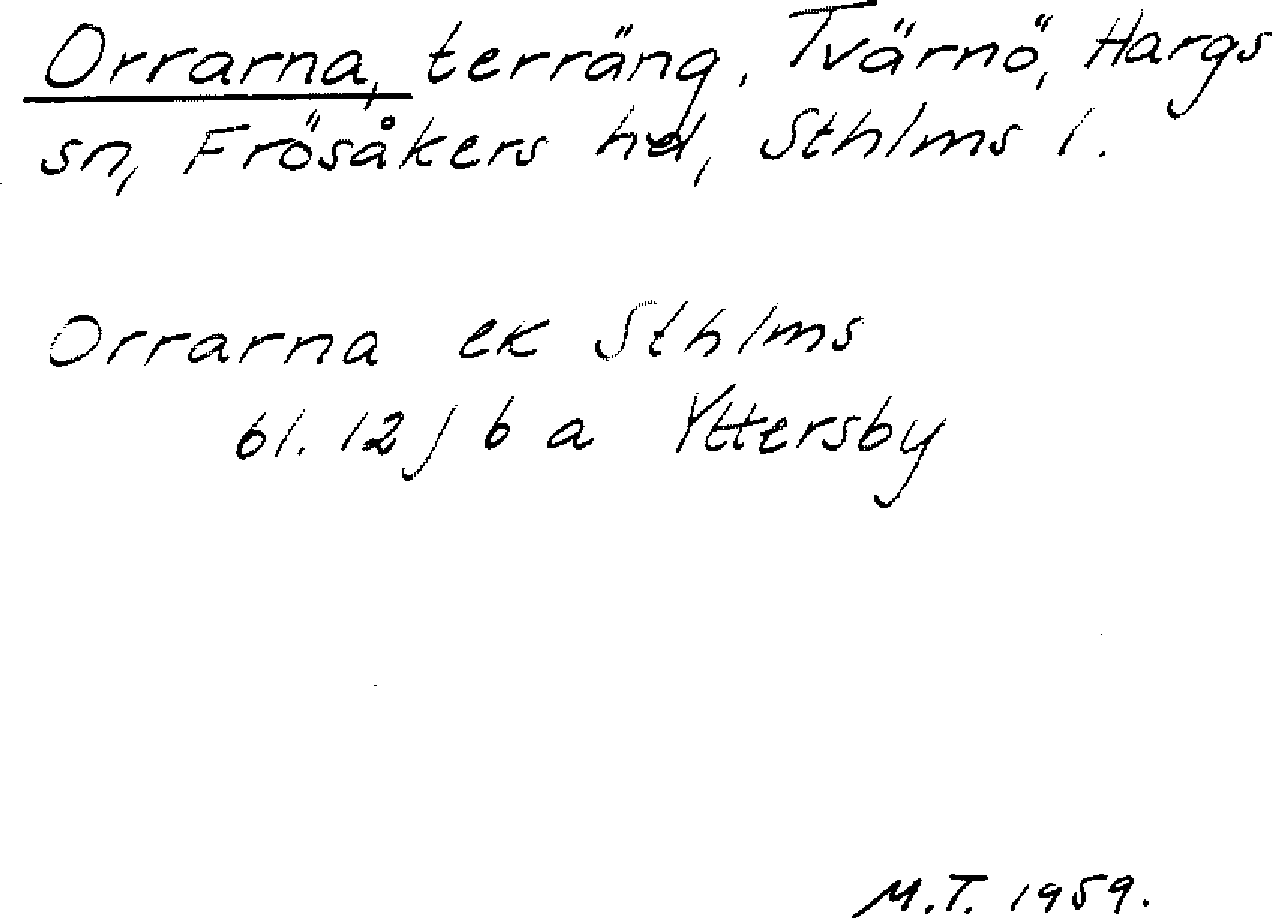 Orrarna, terräng, Tvärnö, Hargs
sn, Frösåkers hd, Sthlms l.
Orrarna ek Sthlms
bl. 12 J 6 a Yttersby
M.T. 1959.